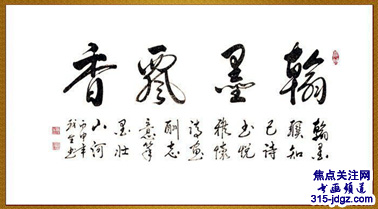 翰墨飘香
翰墨
联知
己诗
书悦
雅怀
诗意
酬志
意笔
墨壮
山河
丙申年
焦点关注网
书画频道
315-jdgz.com